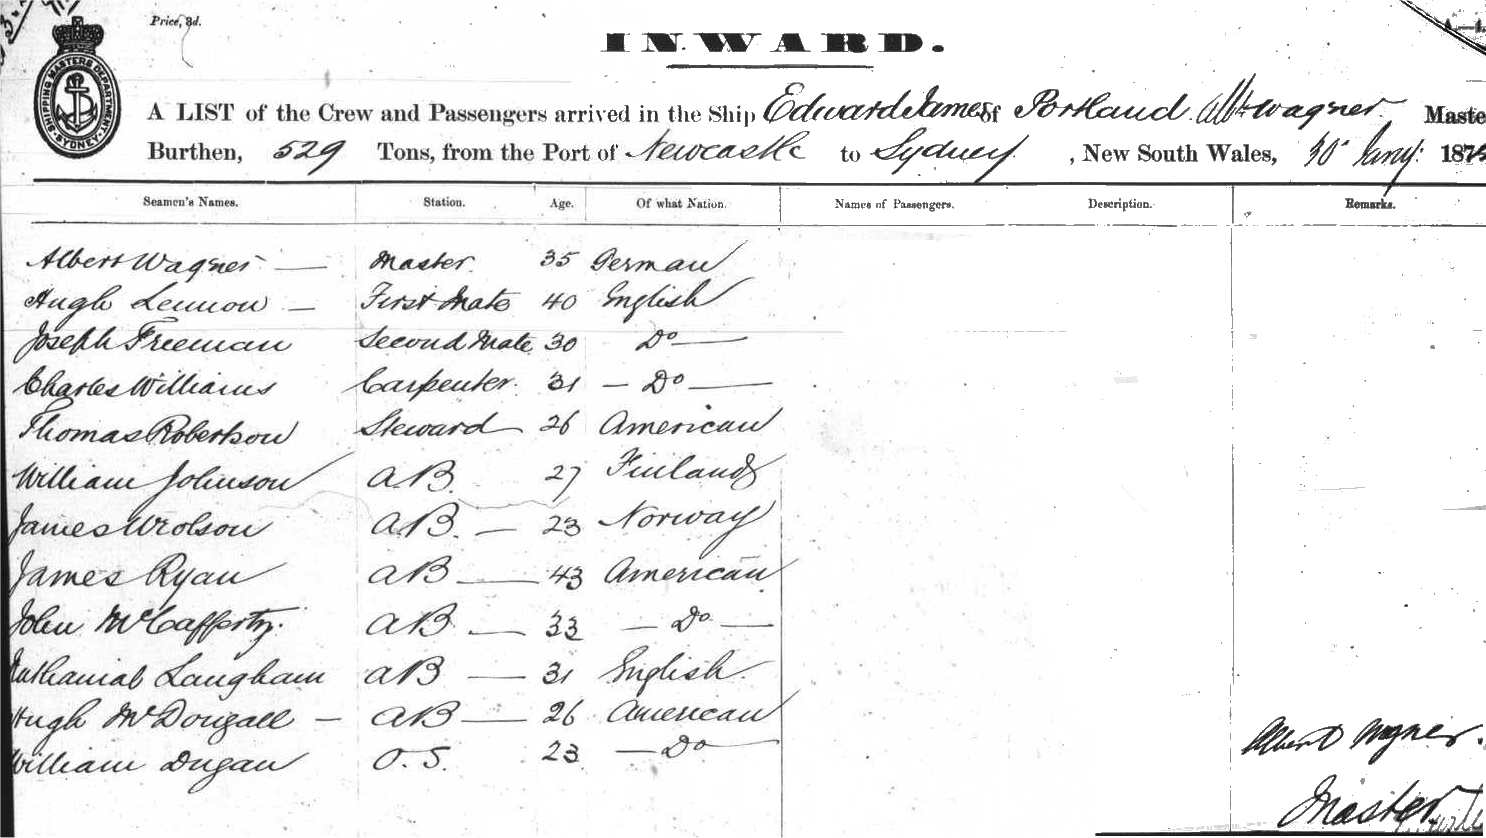 Price, 3d.
INWARD.
SHIPPING MASTERS DEPARTMENT. SYDNEY
A LIST of the Crew and Passengers arrived in the Ship Edward James of Portland Wagner. Maste
Burthen, 529 Tons, from the Port of Newcastle to Sydney, New South Wales, 30 Jany: 187
Seamen's Names. Station. Age. Of what Nation. Names of Passengers. Description. Remarks.
Albert Wagner — Master 35 German
Hugh Lennon — First Mate 40 English
Joseph Freeman Second Mate 30 Do —
Charles Williams Carpenter 31 — Do —
Thomas Robertson Steward 26 American
William Johnson A.B. 27 Finland
James Wrolson A.B. — 23 Norway
James Ryan AB — 43 American
John McCafferty. AB — 33 — Do —
Nathanial Langham AB — 31 English
Hugh McDougall — AB — 26 American
William Dugan O.S. 23 — Do —
Albert Wagner.
Master